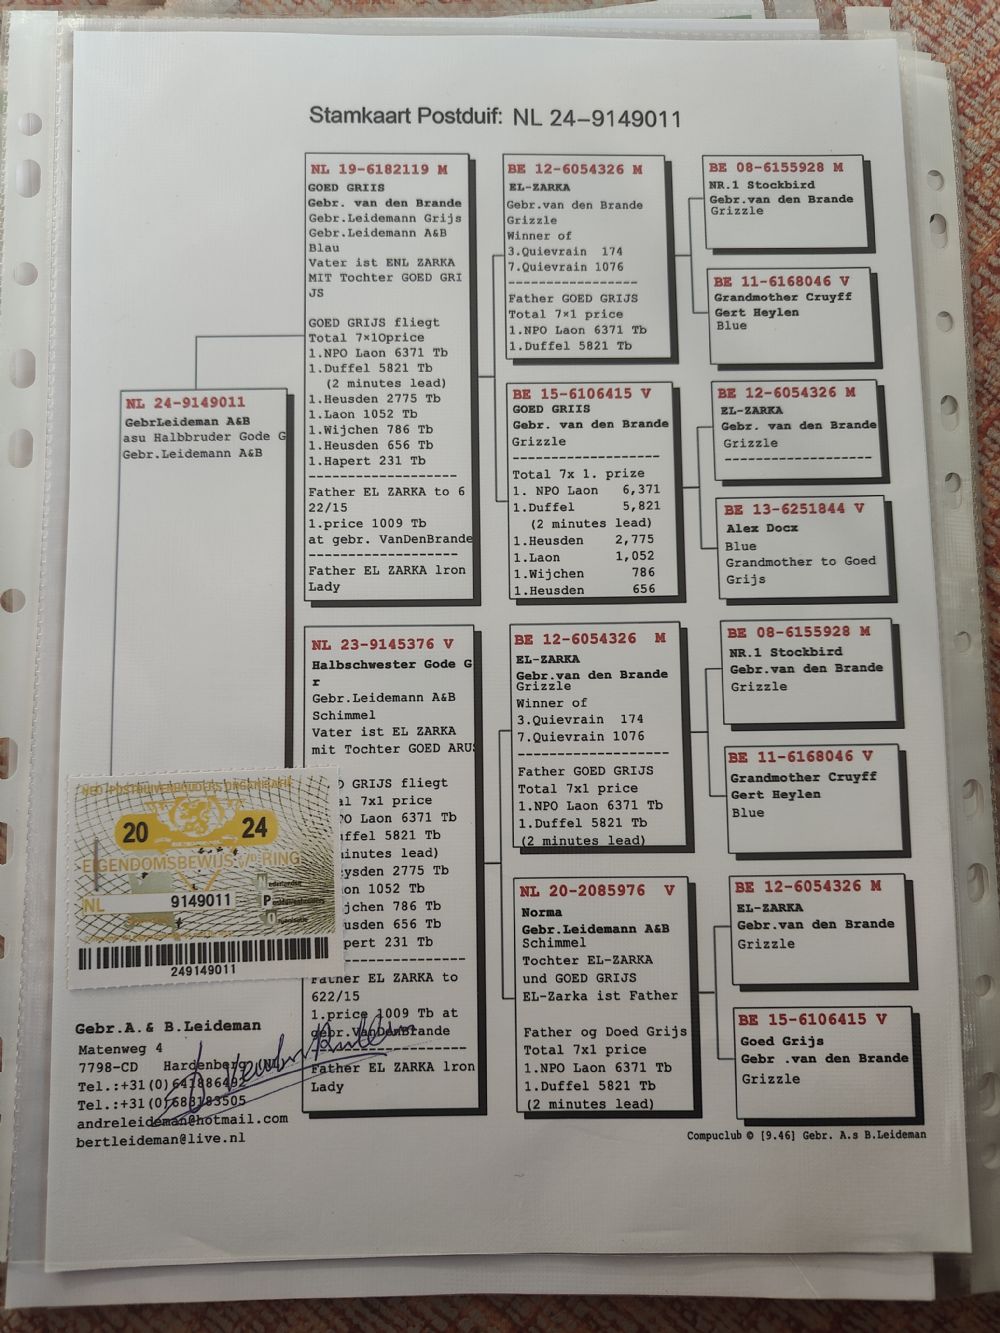 Stamkaart Postduif: NL 24-9149011
NL 24-9149011
GebrLeideman A&B
asu Halbbruder Gode G
Gebr.Leidemann A&B
NL 19-6182119 M
GOED GRIIS
Gebr. van den Brande
Gebr.Leidemann Grijs
Gebr.Leidemann A&B
Blau
Vater ist ENL ZARKA
MIT Tochter GOED GRI
JS
GOED GRIJS fliegt
Total 7×1Oprice
1.NPO Laon 6371 Tb
1.Duffel 5821 Tb
(2 minutes lead)
1.Heusden 2775 Tb
1.Laon 1052 Tb
1.Wijchen 786 Tb
1.Heusden 656 Tb
1.Hapert 231 Tb
--------------------
Father EL ZARKA to 6
22/15
1.price 1009 Tb
at gebr. VanDenBrande
--------------------
Father EL ZARKA lron
Lady
NL 23-9145376 V
Halbschwester Gode G
r
Gebr.Leidemann A&B
Schimmel
Vater ist EL ZARKA
mit Tochter GOED ARUS
D GRIJS fliegt
al 7x1 price
PO Laon 6371 Tb
uffel 5821 Tb
inutes lead)
ysden 2775 Tb
on 1052 Tb
jchen 786 Tb
usden 656 Tb
pert 231 Tb
--------------------
Father EL ZARKA to
622/15
1.price 1009 Tb at
gebr.VanDenBrande
--------------------
Father EL ZARKA lron
Lady
BE 12-6054326 M
EL-ZARKA
Gebr.van den Brande
Grizzle
Winner of
3.Quievrain 174
7.Quievrain 1076
--------------------
Father GOED GRIJS
Total 7×1 price
1.NPO Laon 6371 Tb
1.Duffel 5821 Tb
BE 15-6106415 V
GOED GRIIS
Gebr. van den Brande
Grizzle
--------------------
Total 7x 1. prize
1. NPO Laon 6,371
1.Duffel 5,821
(2 minutes lead)
1.Heusden 2,775
1.Laon 1,052
1.Wijchen 786
1.Heusden 656
BE 12-6054326 M
EL-ZARKA
Gebr.van den Brande
Grizzle
Winner of
3.Quievrain 174
7.Quievrain 1076
--------------------
Father GOED GRIJS
Total 7x1 price
1.NPO Laon 6371 Tb
1.Duffel 5821 Tb
(2 minutes lead)
NL 20-2085976 V
Norma
Gebr.Leidemann A&B
Schimmel
Tochter EL-ZARKA
und GOED GRIJS
EL-Zarka ist Father
Father og Doed Grijs
Total 7x1 price
1.NPO Laon 6371 Tb
1.Duffel 5821 Tb
(2 minutes lead)
BE 08-6155928 M
NR.1 Stockbird
Gebr.van den Brande
Grizzle
BE 11-6168046 V
Grandmother Cruyff
Gert Heylen
Blue
BE 12-6054326 M
EL-ZARKA
Gebr. van den Brande
Grizzle
--------------------
BE 13-6251844 V
Alex Docx
Blue
Grandmother to Goed
Grijs
BE 08-6155928 M
NR.1 Stockbird
Gebr.van den Brande
Grizzle
BE 11-6168046 V
Grandmother Cruyff
Gert Heylen
Blue
BE 12-6054326 M
EL-ZARKA
Gebr.van den Brande
Grizzle
BE 15-6106415 V
Goed Grijs
Gebr .van den Brande
Grizzle
NED. POSTDUIVENHOUDERS ORGANISATIE
20 24
EIGENDOMSBEWIJS v/d RING
NL 9149011
Nederlandse
Postduivenhouders
Organisatie
249149011
Gebr.A.& B.Leideman
Matenweg 4
7798-CD Hardenberg
Tel.:+31(0)641886492
Tel.:+31(0)683183505
andreleideman@hotmail.com
bertleideman@live.nl
Compuclub © [9.46] Gebr. A.s B.Leideman